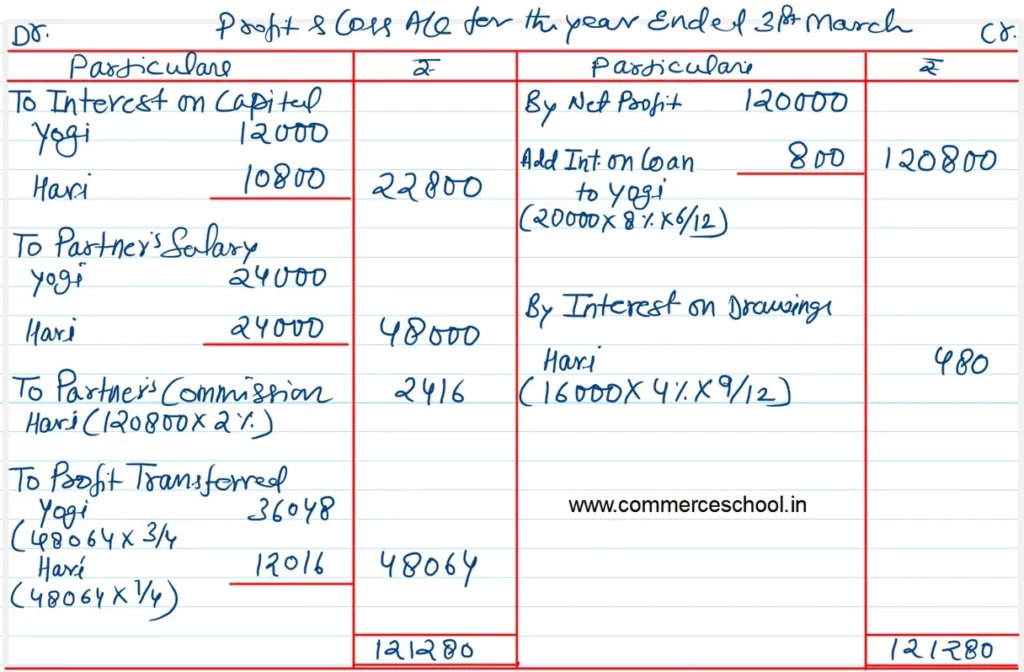 Dr. Profit & Loss A/c for the year Ended 31st March Cr.
Particulars ₹ Particulars ₹
To Interest on Capital
Yogi 12000
Hari 10800 22800
To Partner's Salary
Yogi 24000
Hari 24000 48000
To Partner's Commission 2416
Hari (120800 X 2%)
To Profit Transferred
Yogi 36048
(48064 X 3/4
Hari 12016 48064
(48064 X 1/4)
121280
By Net Profit 120000
Add Int. on Loan 800 120800
to Yogi
(20000 X 8% X 6/12)
By Interest on Drawings
Hari 480
(16000 X 4% X 9/12)
www.commerceschool.in
121280